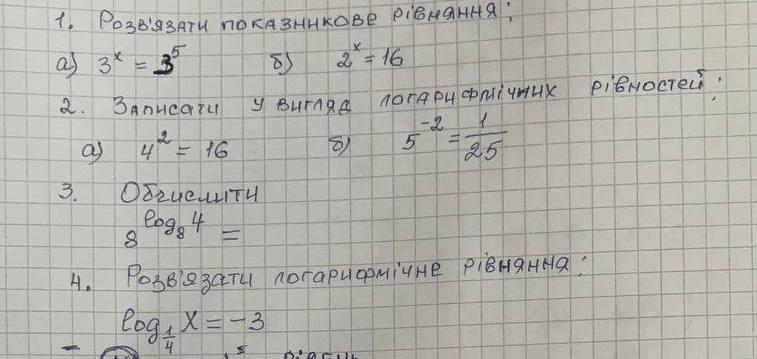 1. Розв'язати показникове рівняння:
а) 3^x = 3^5 б) 2^x = 16
2. Записати у вигляд логарифмічних рівностей:
а) 4^2 = 16 б) 5^-2 = 1/25
3. Обчислити
8^log_8 4 =
4. Розв'язати логарифмічне рівняння:
log_1/4 x = -3